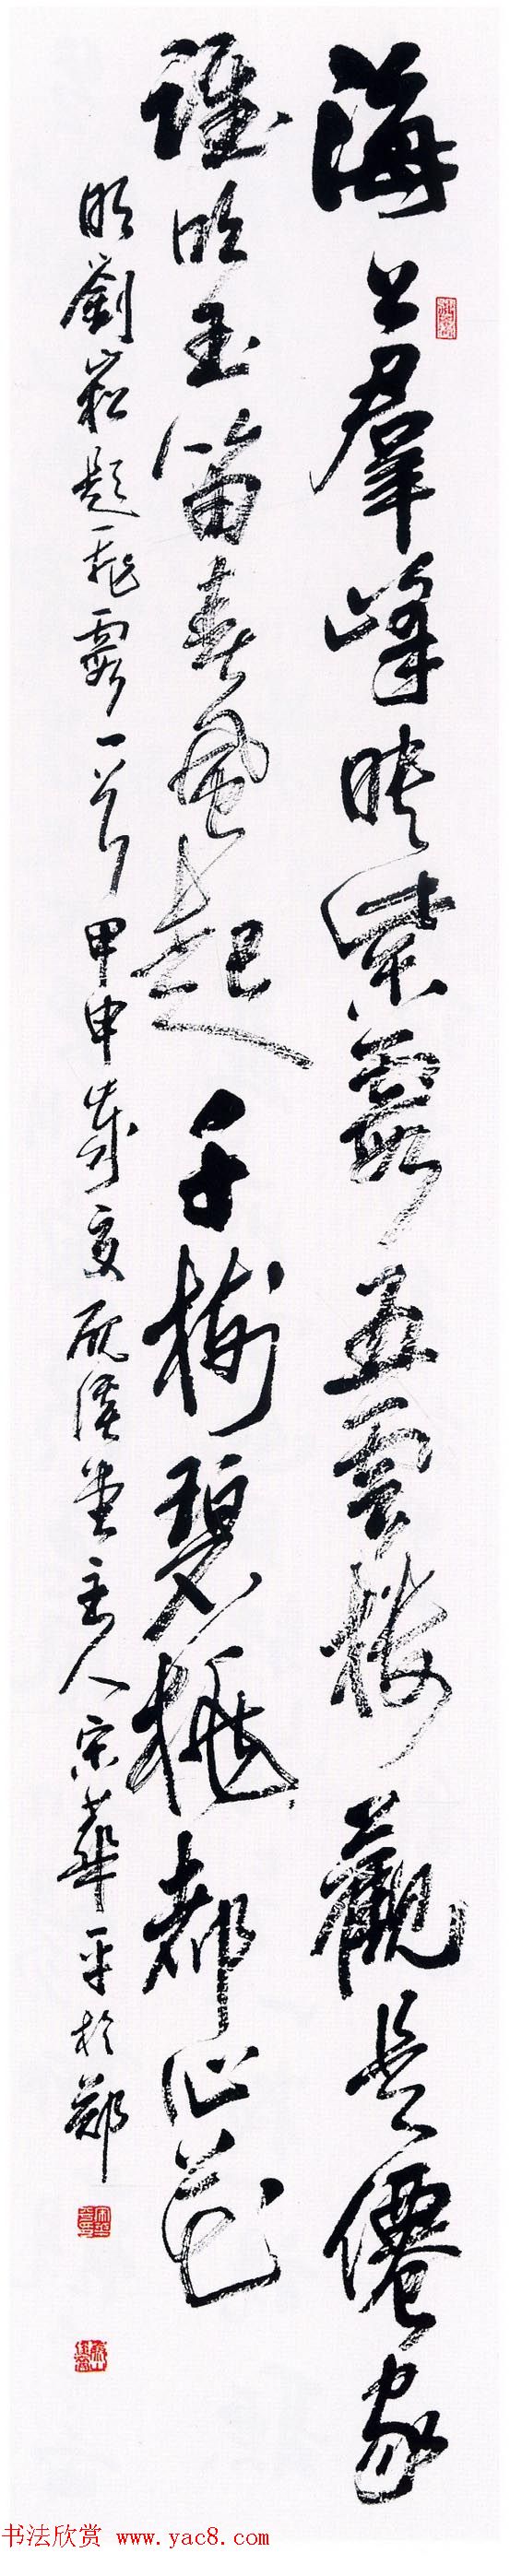 海上群峰映紫霞五云楼观是仙家
谁吹玉笛春风起千树碧桃都作花
明刘崧题飞霞一首甲申岁夏砚溪堂主人宋华平于郑
书法欣赏 www.yac8.com